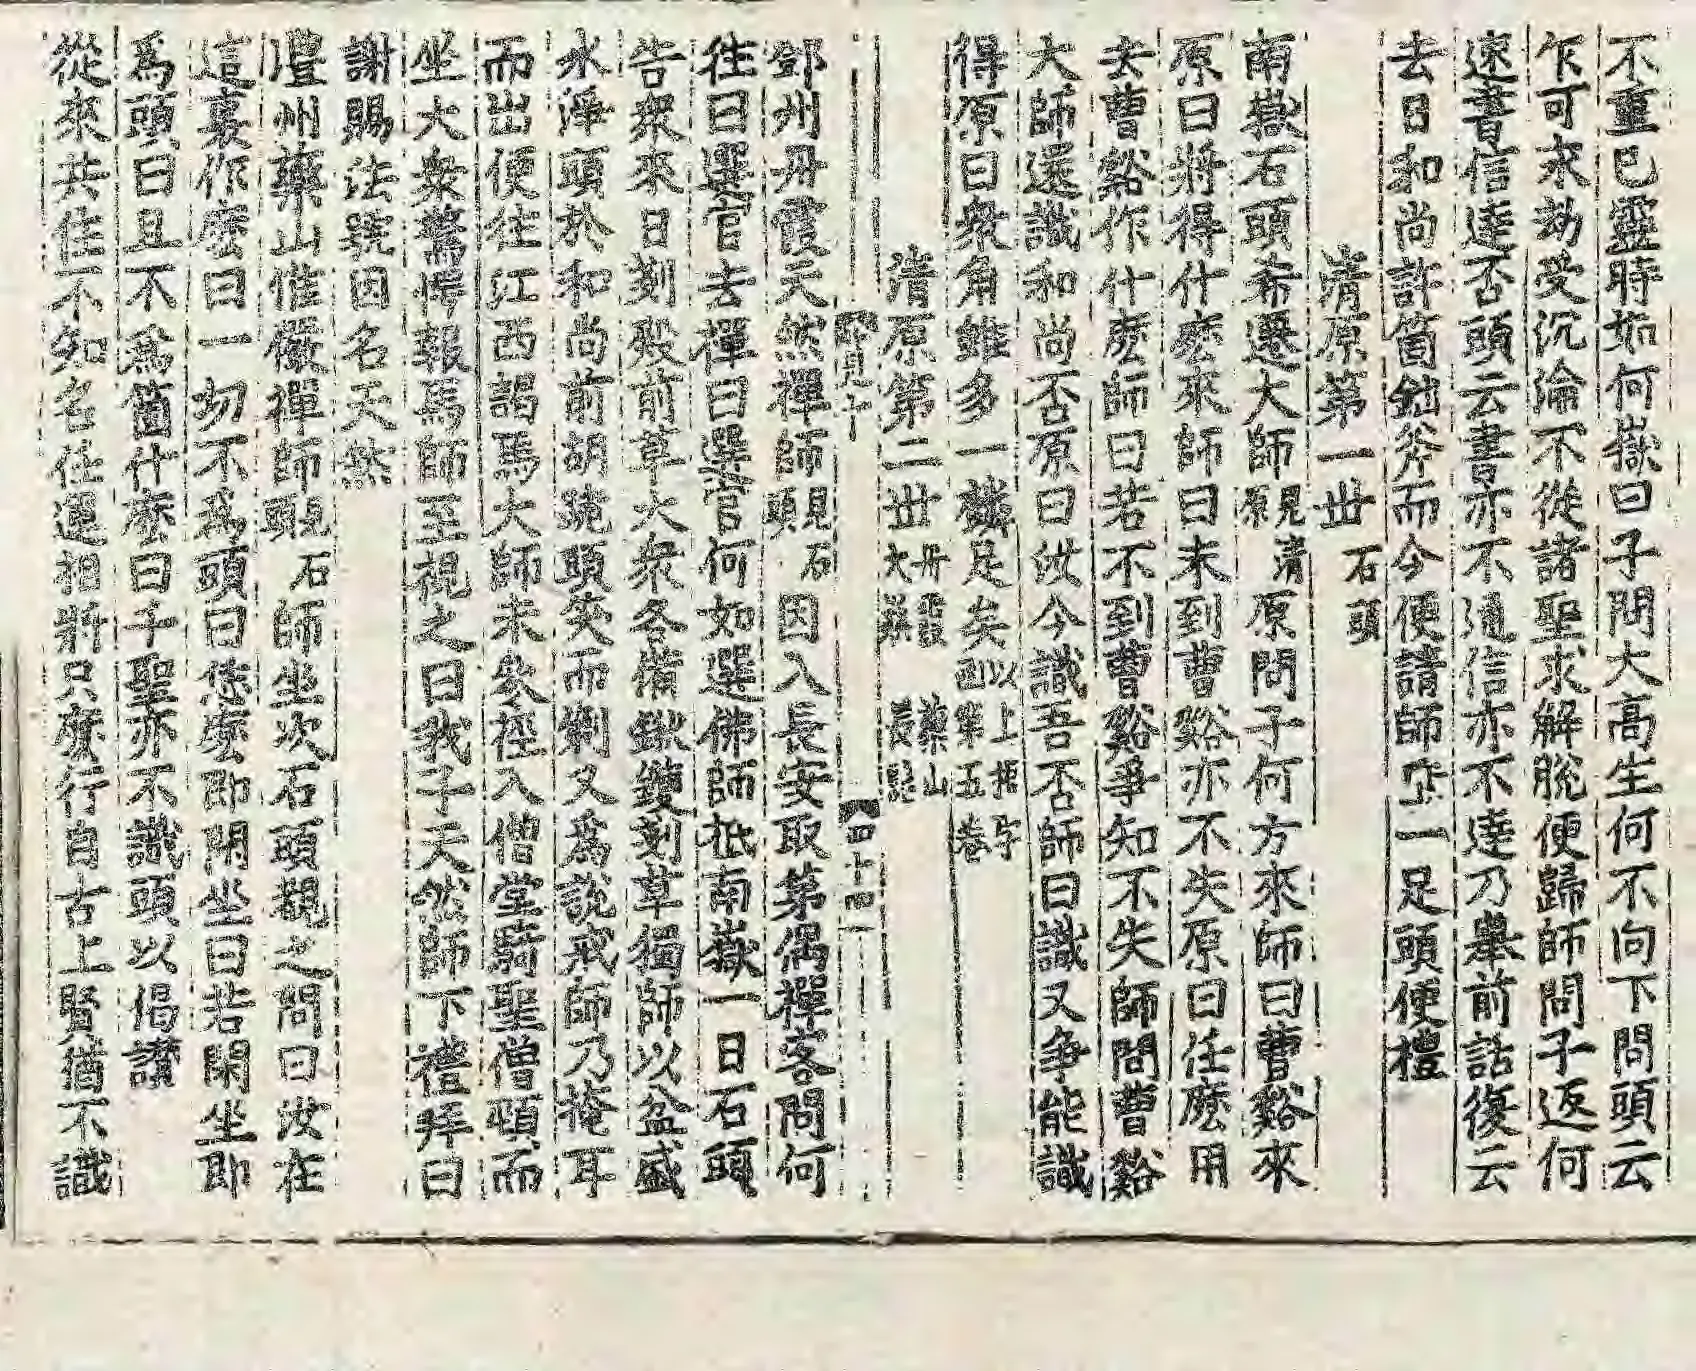 不重己靈時如何嶽曰子問大高生何不向下問頭云
乍可永劫受沉淪不從諸聖求解脫便歸師問子返何
速書信達否頭云書亦不通信亦不達乃舉前話復云
去日和尚許箇鈯斧而今便請師垂一足頭便禮
清原第一丗 石頭
南嶽石頭希遷大師見清原 原問子何方來師曰曹谿來
原曰將得什麽來師曰未到曹谿亦不失原曰任麽用
去曹谿作什麽師曰若不到曹谿爭知不失師問曹谿
大師還識和尚否原曰汝今識吾否師曰識又爭能識
得原曰衆角雖多一麟足矣以上拒守函第五卷
清原第二丗 丹霞 藥山 大䔥 長髭
四十四
鄧州丹霞天然禪師見石頭 因入長安取第偶禪客問何
徃曰選官去禪曰選官何如選佛師抵南嶽一日石頭
告衆來日剗殿前草大衆各備鍬钁剗草獨師以盆盛
水淨頭於和尚前胡跪頭笑而剃又爲說戒師乃掩耳
而出便往江西謁馬大師未參徑入僧堂騎聖僧頸而
坐大衆驚愕報馬師至視之曰我子天然師下禮拜曰
謝賜法號因名天然
澧州藥山惟儼禪師見石頭 師坐次石頭覩之問曰汝在
這裏作麽曰一切不爲頭曰恁麽即閑坐曰若閑坐即
爲頭曰且不爲箇什麽曰千聖亦不識頭以偈讃
從來共住不知名任運相將只麽行自古上賢猶不識